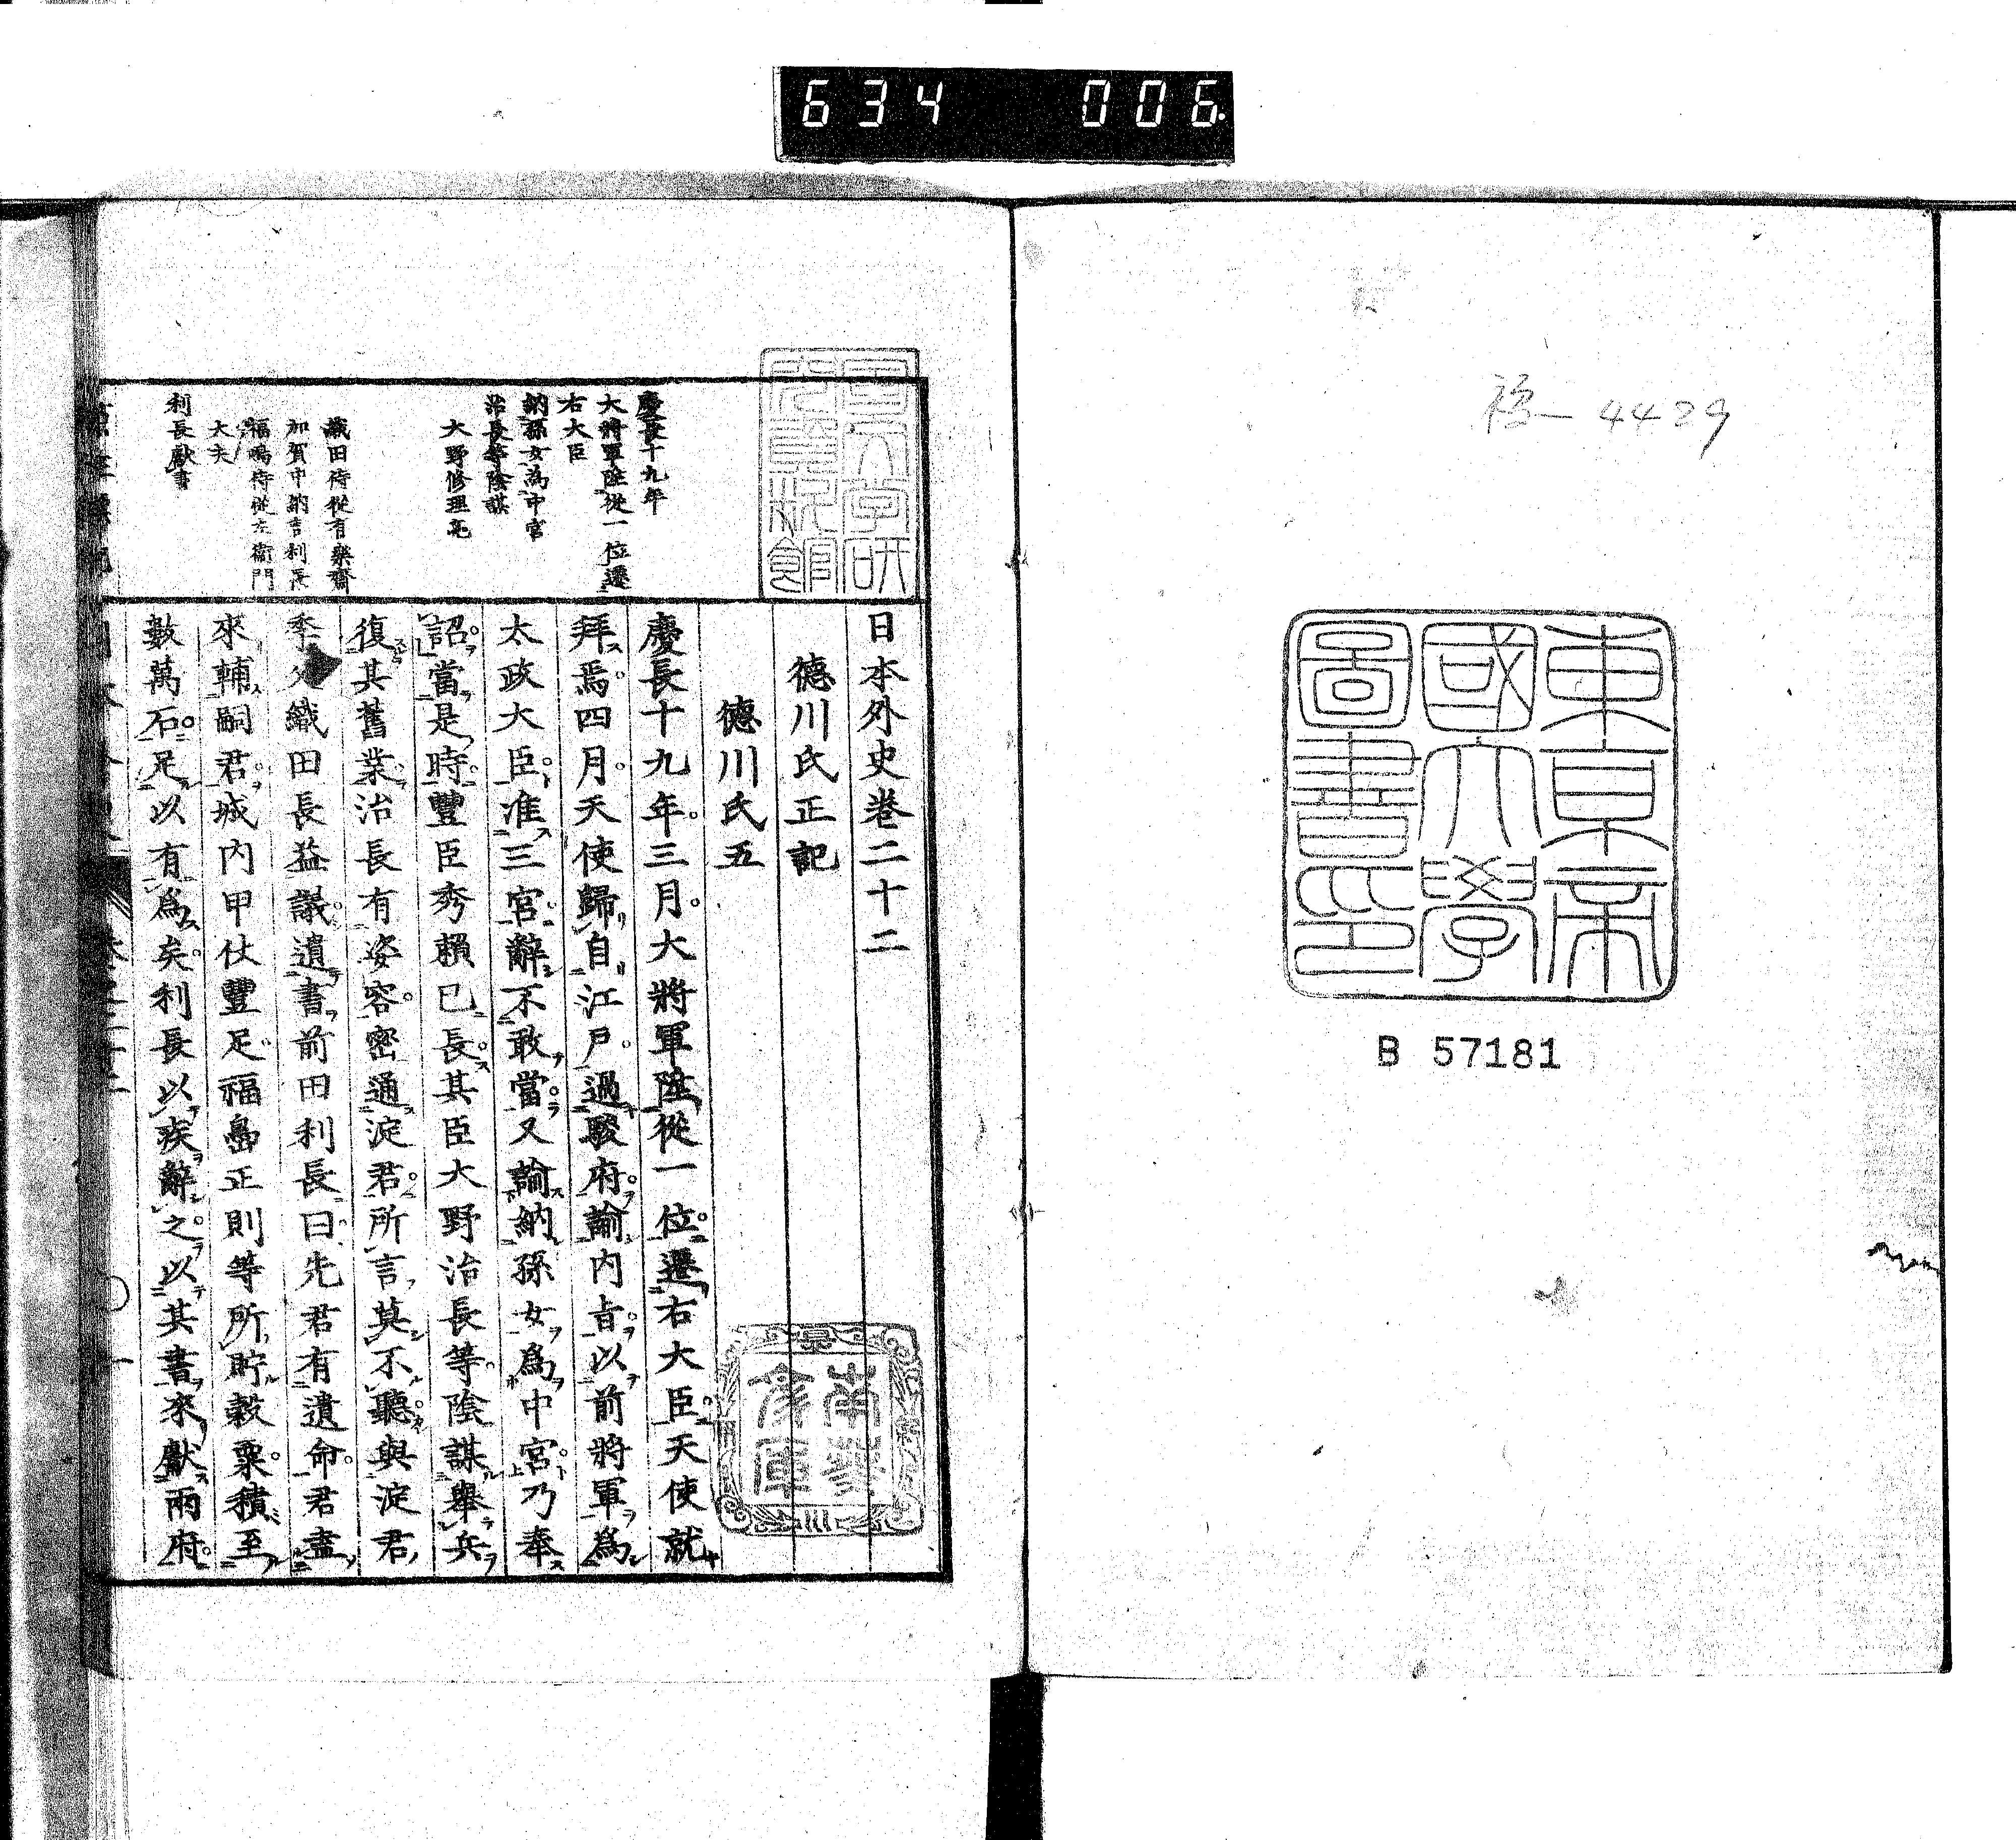 634 006.
稜一 4429
東京帝
國大學
圖書印
B 57181
日本外史卷二十二
德川氏正記
德川氏五
慶長十九年三月大將軍陞從一位遷右大臣天使就
拜焉四月天使歸自江戶過駿府諭內旨以前將軍爲
太政大臣准三宮辭不敢當又諭納孫女爲中宮乃奉
詔當是時豐臣秀賴已長其臣大野治長等陰謀舉兵
復其舊業治長有姿容密通淀君所言莫不聽與淀君
季父織田長益議遺書前田利長曰先君有遺命君盡
來輔嗣君城內甲仗豐足福島正則等所貯穀粟積至
數萬石足以有爲矣利長以疾辭之以其書來獻兩府
慶長十九年
大將軍陞從一位遷
右大臣
納孫女爲中宮
治長等陰謀
大野修理亮
織田侍從有樂齋
加賀中納言利長
福嶋侍從左衞門
大夫
利長獻書
南葵
文庫